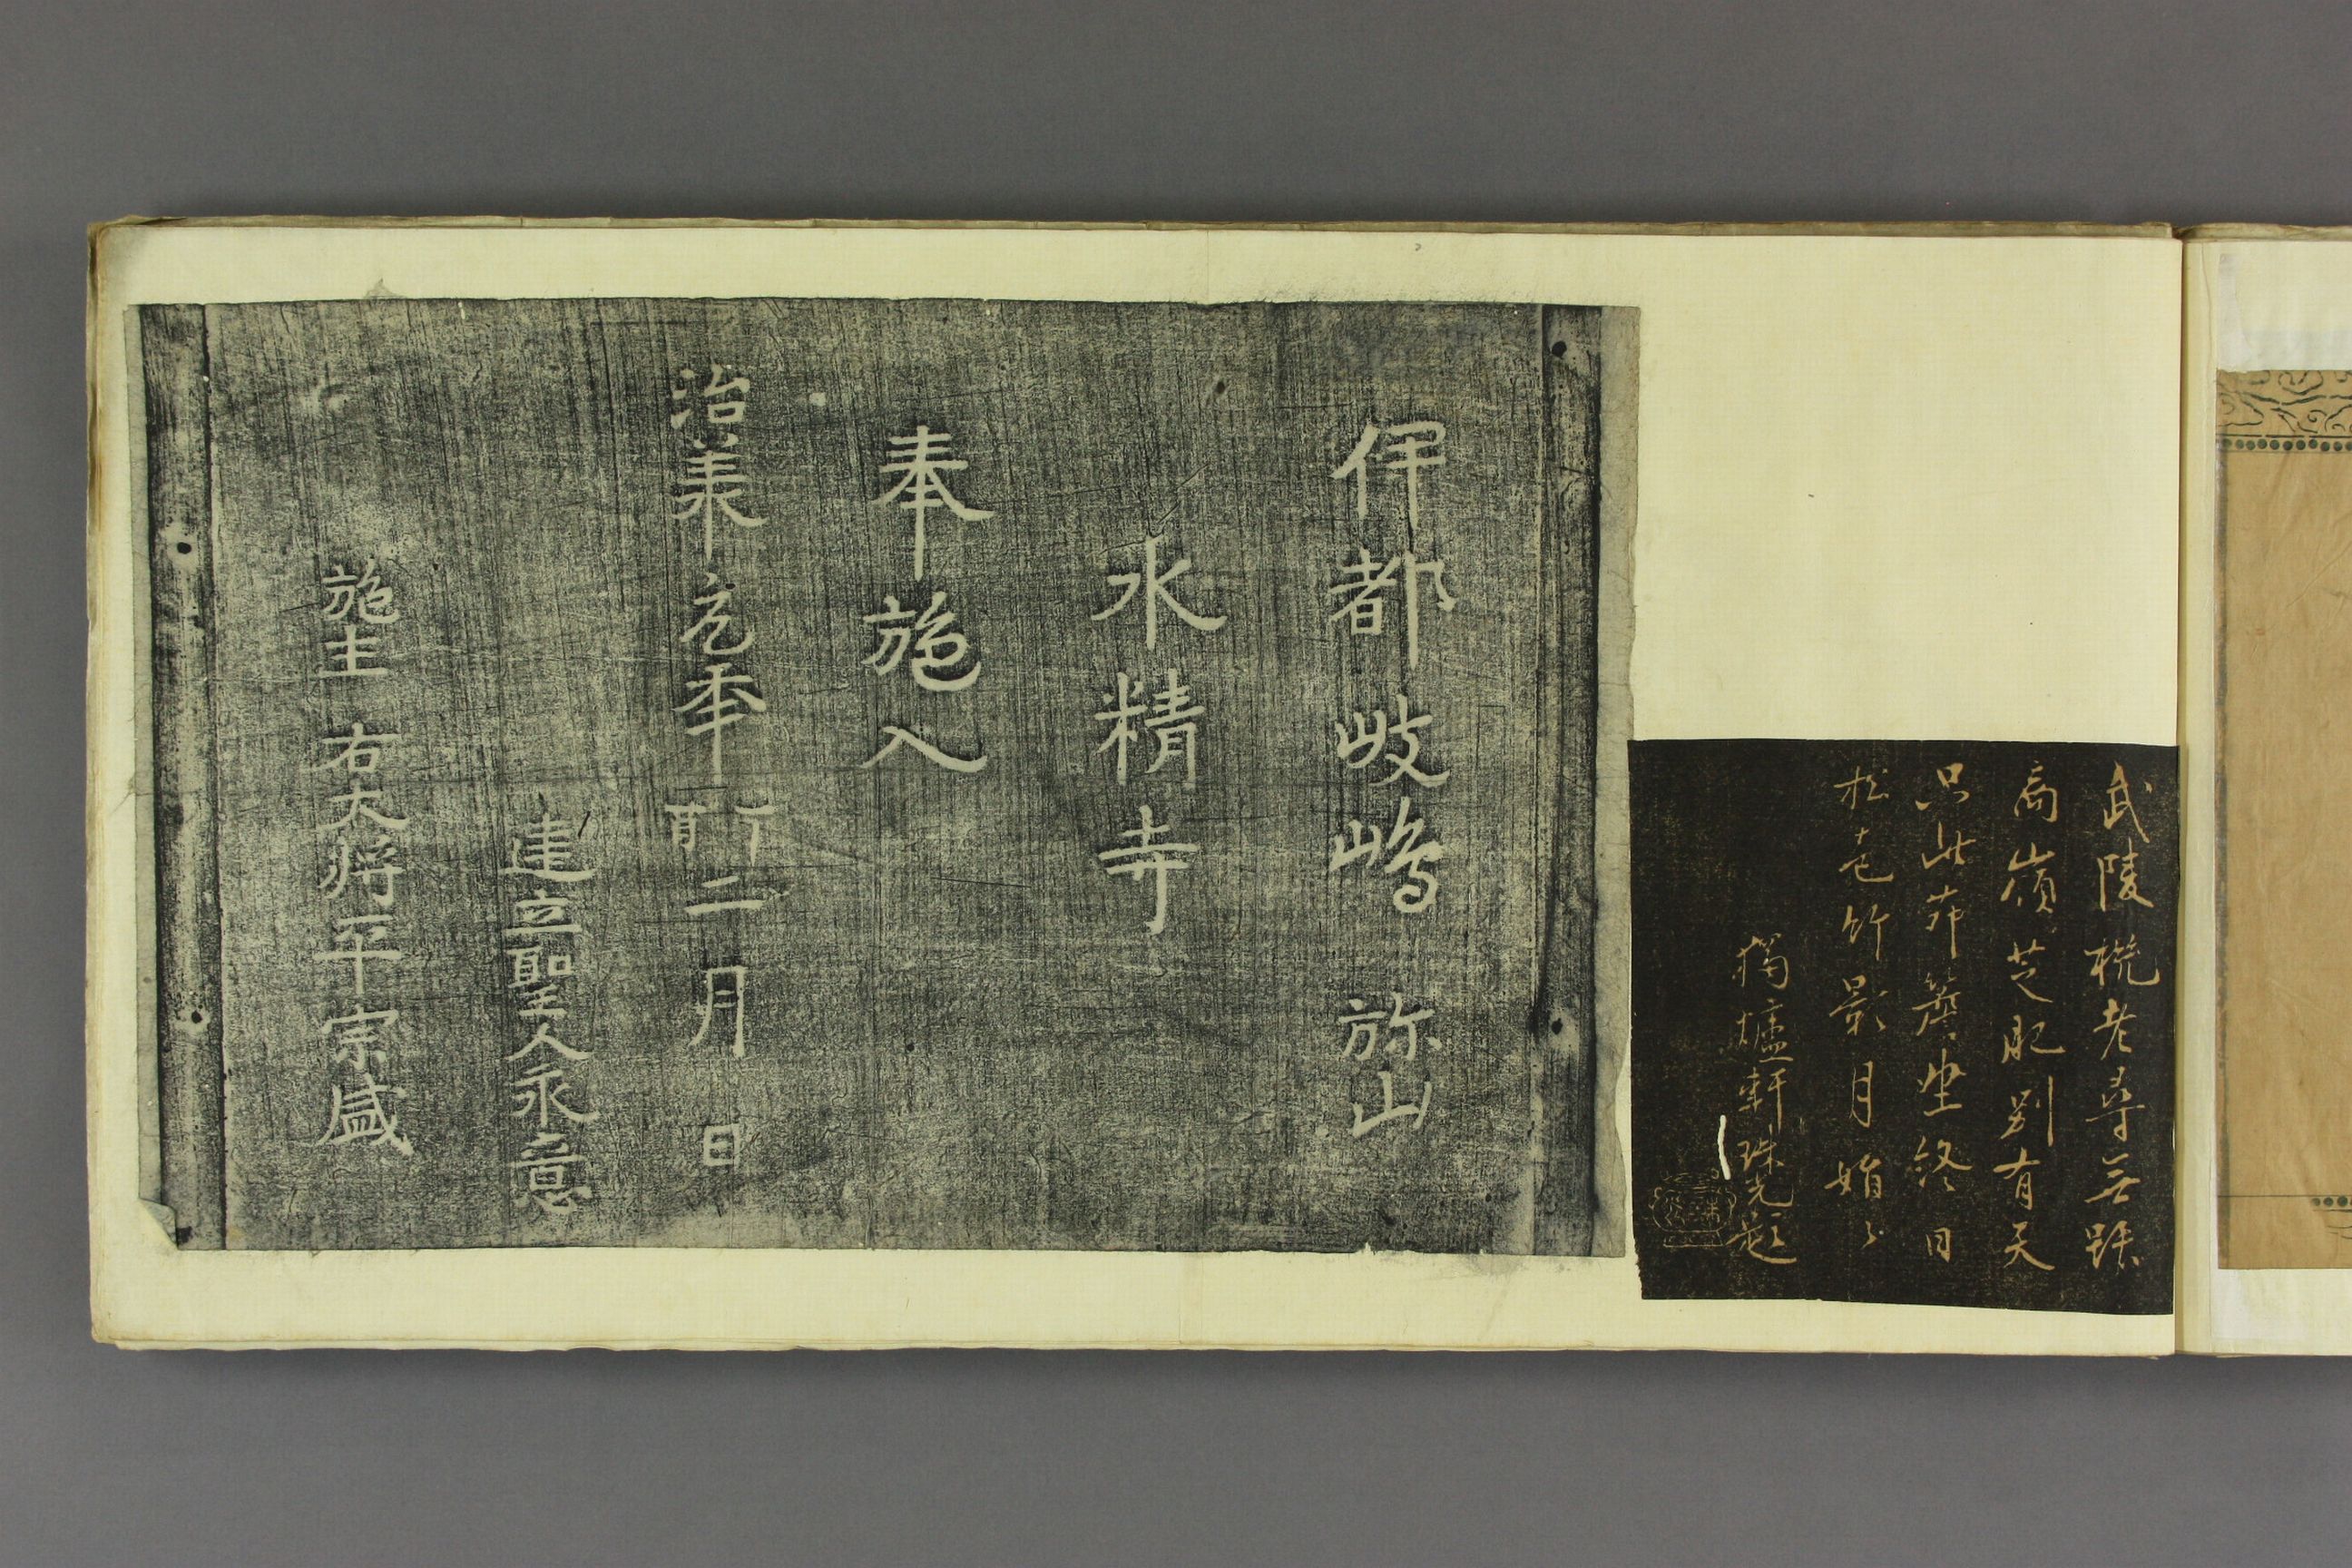 武陵桃老尋無蹤
商嶺芝肥別有天
只此茆簷坐終日
松花竹影月娟々
珠光題
伊都岐嶋 弥山
水精寺
奉施入
治承元年丁酉二月 日
建立聖人永意
施主 右大将平宗盛